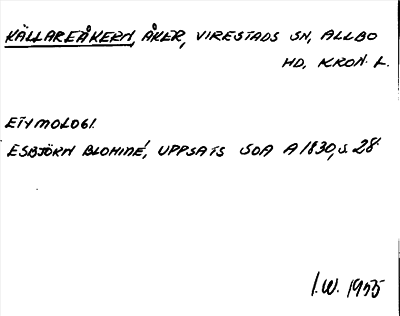 KÄLLAREÅKERN, ÅKER, VIRESTADS SN, ALLBO
HD, KRON. L.
ETYMOLOGI.
ESBJÖRN BLOHMÉ, UPPSATS SOA A 1830, s. 28
I.W. 1955